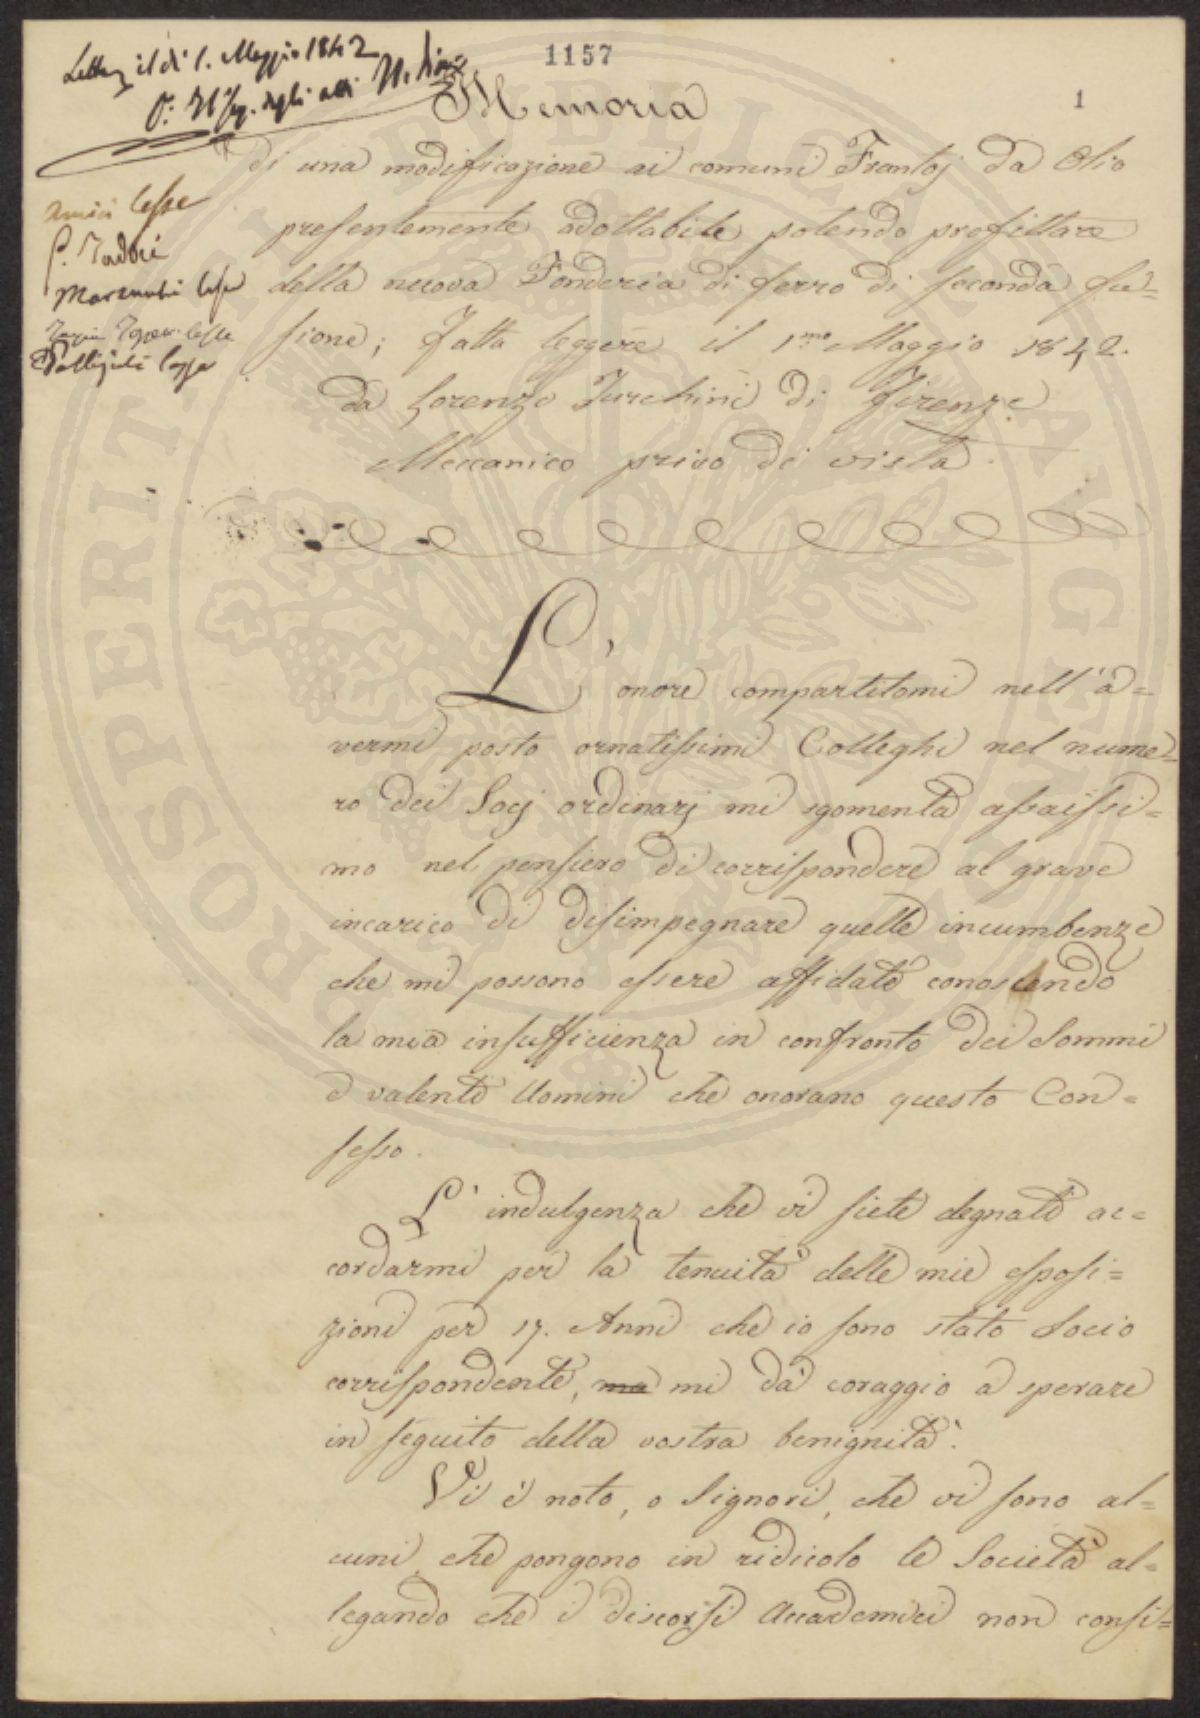 1157
1
Letta il dì 1. Maggio 1842
Il Seg. degli atti
Memoria
di una modificazione ai comuni Frantoj da Olio
presentemente adottabile potendo profittare
della nuova Fonderia di ferro di seconda fu=
sione; Fatta leggere il 1.mo Maggio 1842.
da Lorenzo Turchini di Firenze
Meccanico privo di vista
Amici lesse
lesse
lesse
L'onore compartitomi nell'a=
vermi posto ornatissimi Colleghi nel nume=
ro dei Socj ordinarj mi sgomenta assaissi=
mo nel pensiero di corrispondere al grave
incarico di disimpegnare quelle incumbenze
che mi possono essere affidate conoscendo
la mia insufficienza in confronto dei Sommi
e valenti Uomini che onorano questo Con=
sesso.
L'indulgenza che vi siete degnati ac=
cordarmi per la tenuità delle mie esposi=
zioni per 17. Anni che io sono stato Socio
corrispondente, ma mi dà coraggio a sperare
in seguito della vostra benignità.
Vi è noto, o Signori, che vi sono al=
cuni, che pongono in ridicolo le Società al=
legando che i discorsi Accademici non consi=
PROSPERITATI PUBLICAE AVGENDAE